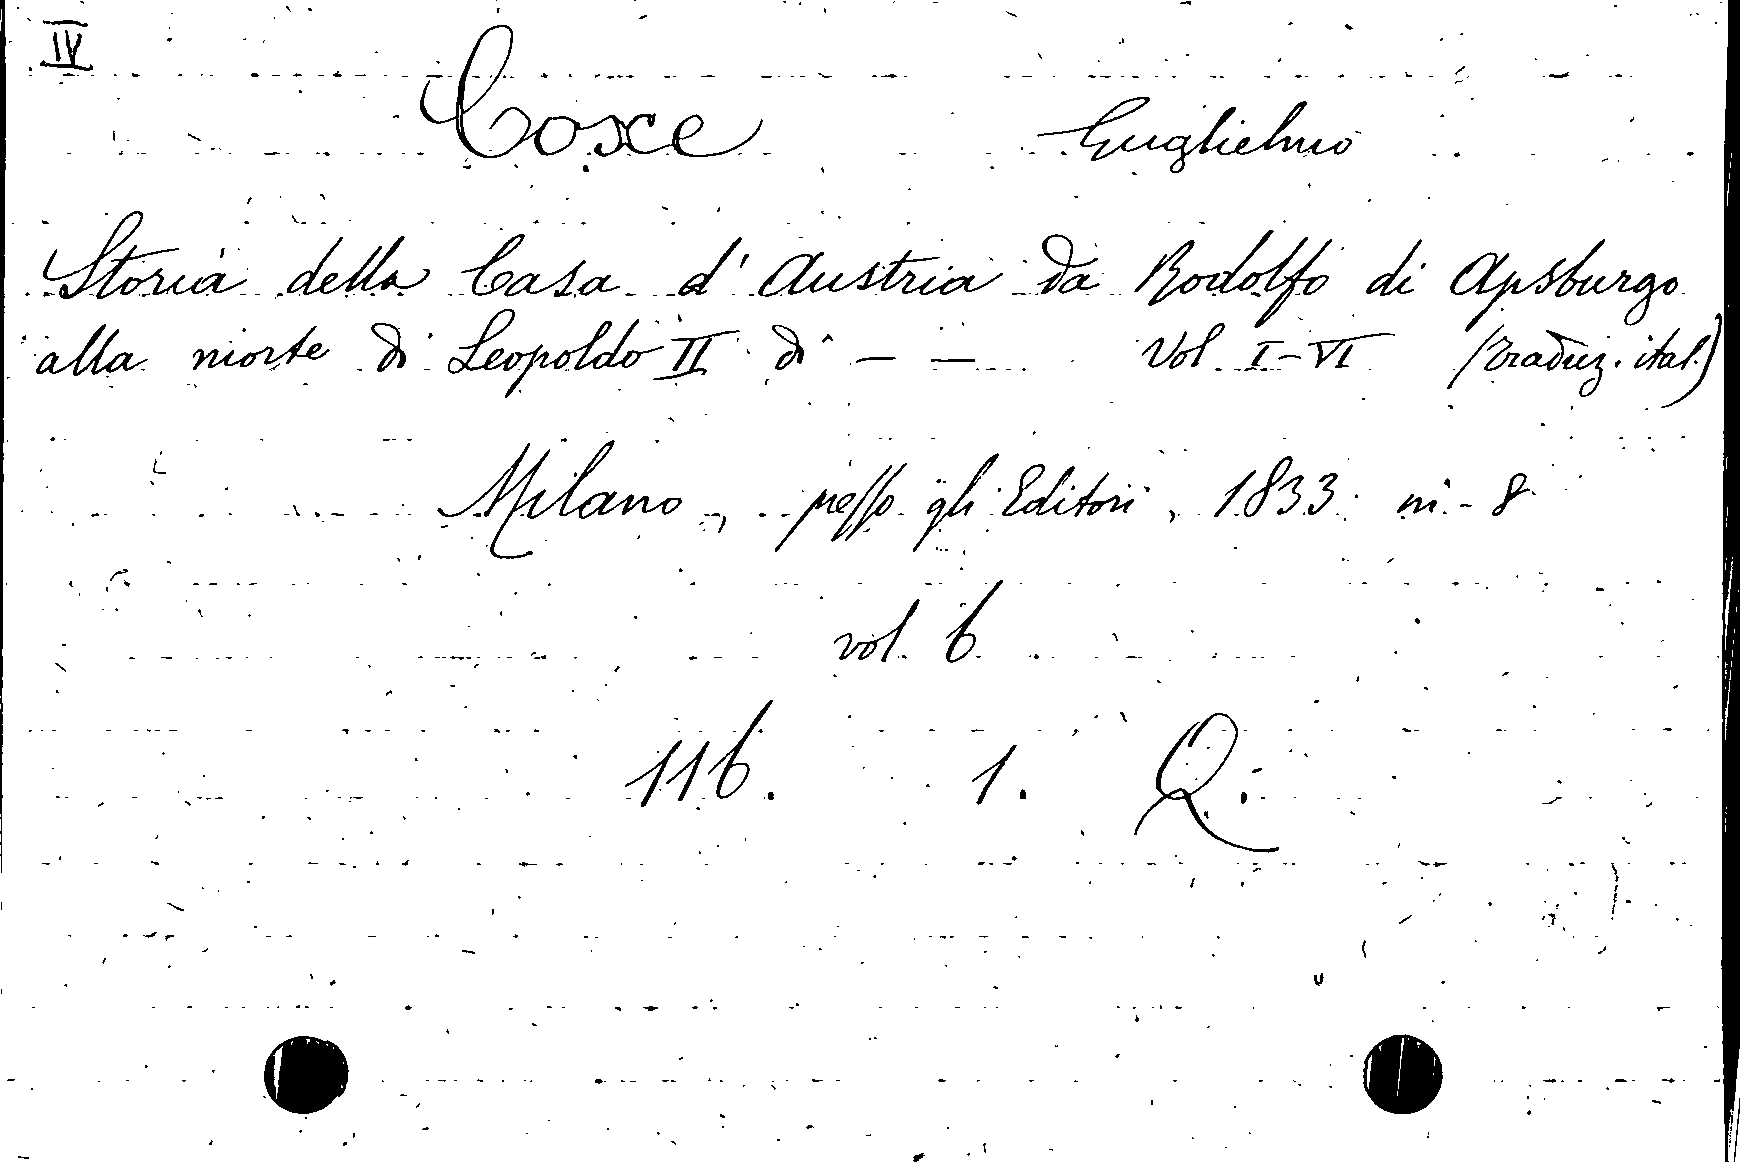 IV
Coxe Guglielmo
Storia della Casa d'Austria da Rodolfo di Apsburgo
alla morte di Leopoldo II di — — Vol I-VI (Traduz. ital.)
Milano, presso gli Editori, 1833. in-8
vol. 6
116. 1. Q.